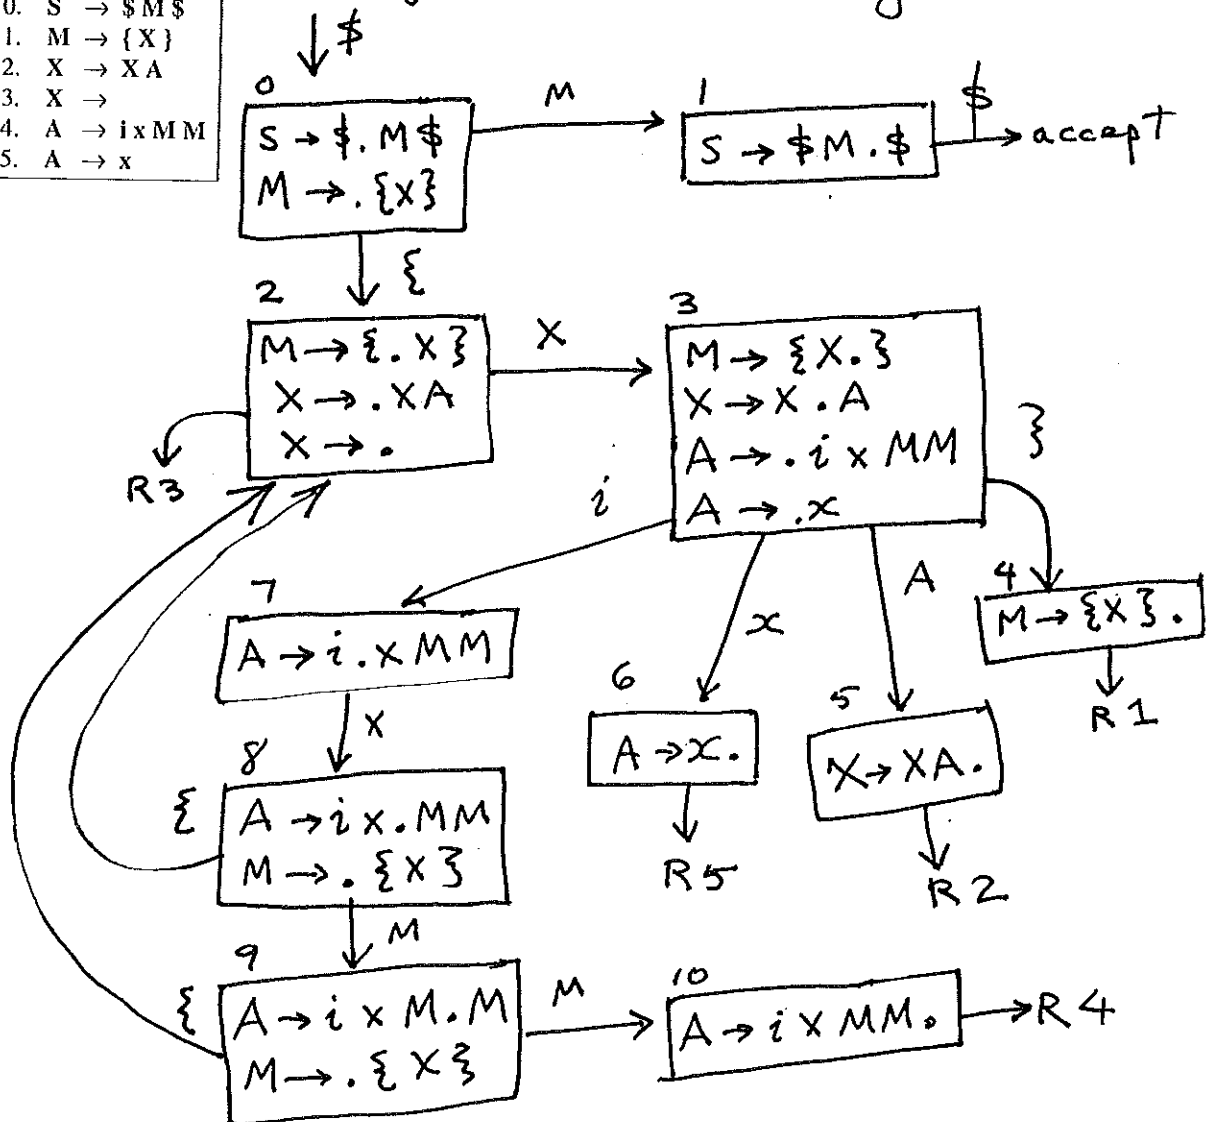 0. S → $ M $
1. M → { X }
2. X → X A
3. X →
4. A → i x M M
5. A → x
$
0
S → $.M$
M → .{X}
M
1
S → $M.$
$
accept
{
2
M → {.X}
X → .XA
X → .
R3
X
3
M → {X.}
X → X.A
A → .ixMM
A → .x
}
i
x
A
4
M → {X}.
R1
7
A → i.xMM
x
6
A → x.
R5
5
X → XA.
R2
8
{
A → ix.MM
M → .{X}
M
9
{
A → ixM.M
M → .{X}
M
10
A → ixMM.
R4